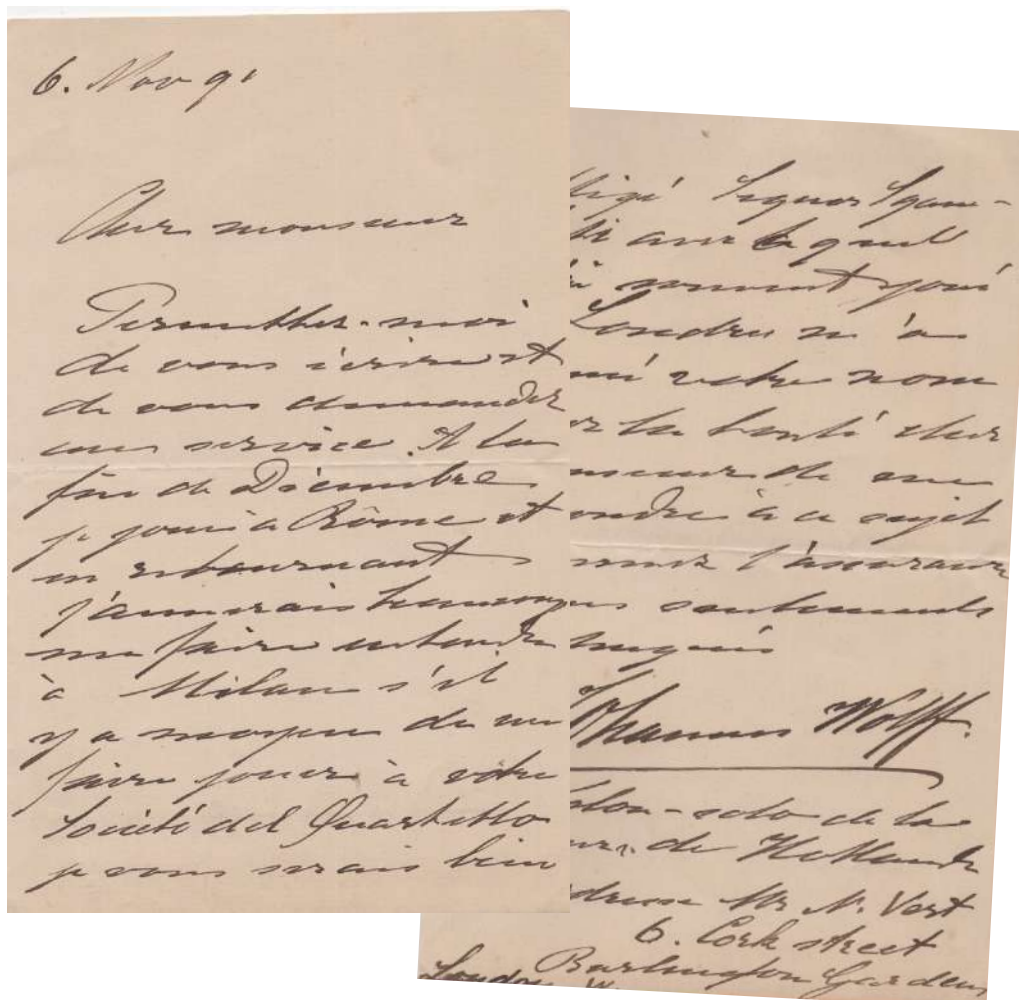 6. Nov 91
Cher monsieur
Permettez-moi
de vous écrire et
de vous demander
un service. A la
fin de Décembre
je joue à Rôme et
en retournant
j'aimerais
me faire entendre
à Milan s'il
y a moyen de me
faire jouer à votre
Société del Quartetto
je vous serais bien
Signor Sgam-
avec le quel
souvent joué
Londres m'a
votre nom
la bonté cher
de me
à ce sujet
l'assurance
sentiments
Wolff.
solo de la
de Hollande
Mr N. Vert
6. Cork street
Burlington Gardens
London W.